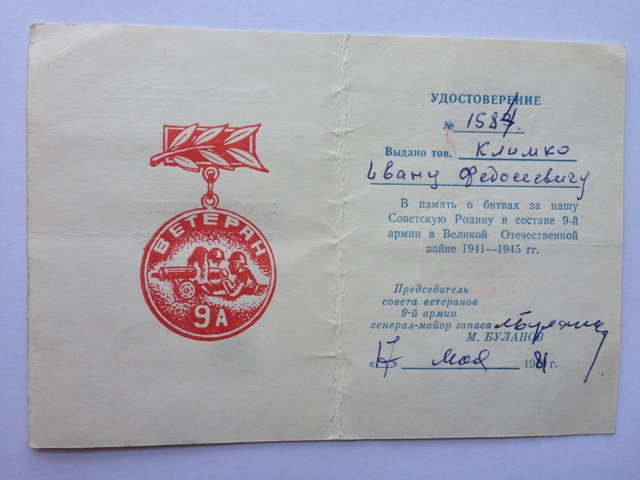 ВЕТЕРАН
9А
УДОСТОВЕРЕНИЕ
№ 1584.
Выдано тов. Климко
Ивану Федосеевичу
В память о битвах за нашу
Советскую Родину в составе 9-й
армии в Великой Отечественной
войне 1941—1945 гг.
Председатель
совета ветеранов
9-й армии
генерал-майор запаса
М. БУЛАНОВ
«17» мая 1981 г.